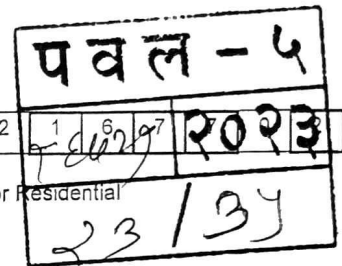 पवल - ५
2 1 6 7 २०२३
or Residential
२३ / ३५